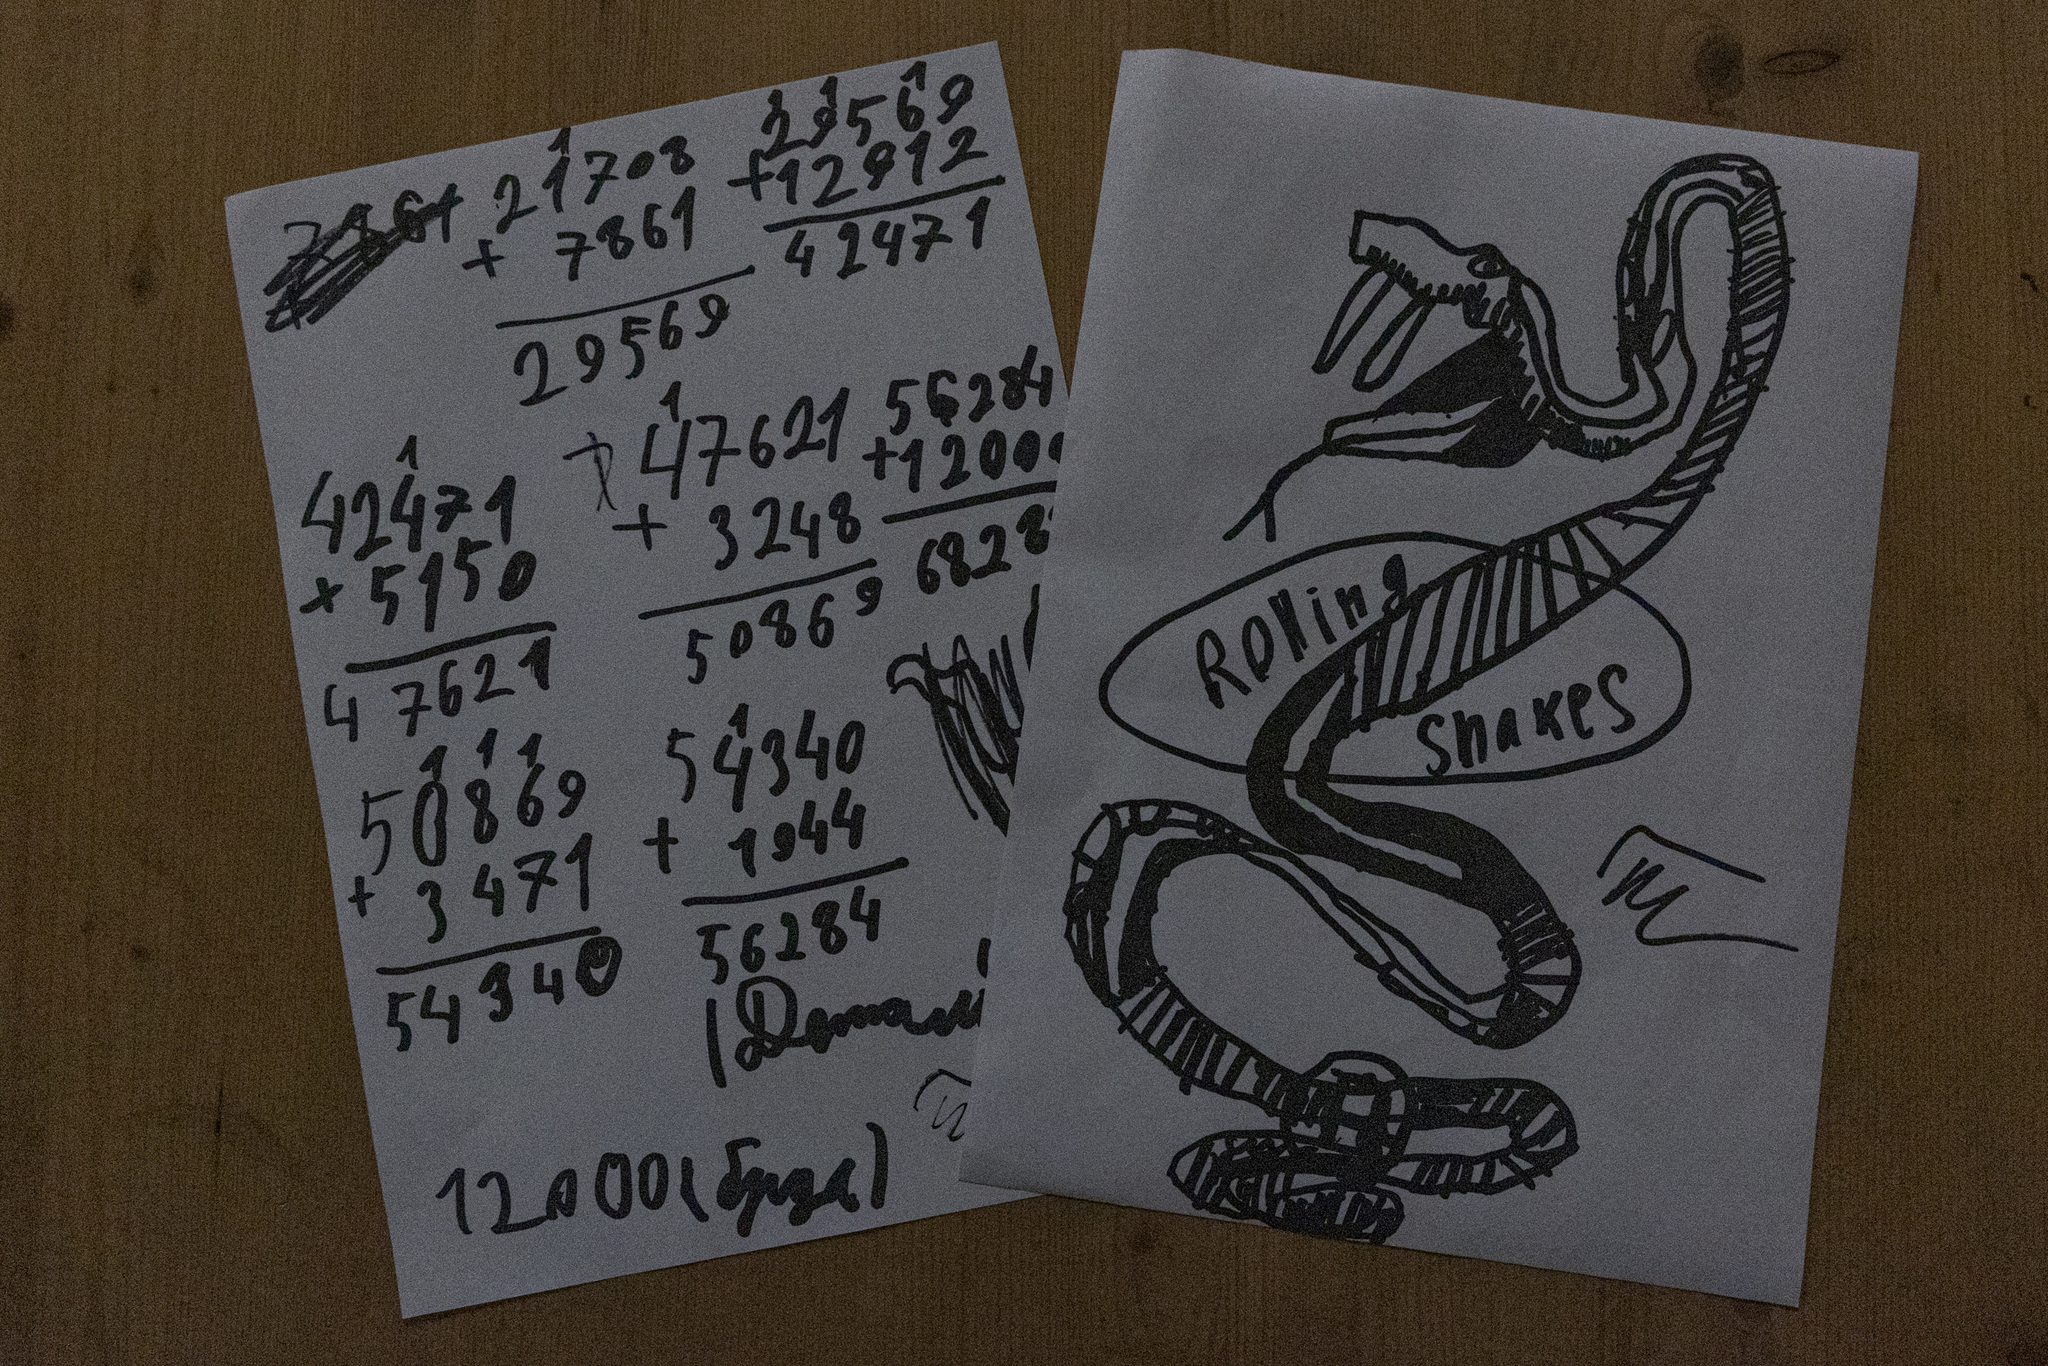 1
21708
+ 7861
29569
1 1 1
29569
+12912
42471
1
42471
+ 5150
47621
1
47621
+ 3248
50869
56284
+1200
6828
1 1 1
50869
+ 3471
54340
1
54340
+ 1944
56284
12000(
Rolling
snakes